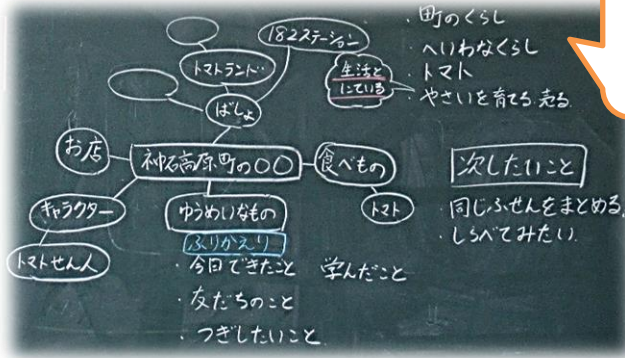 182ステーション
トマトランド
ばしょ
お店
神石高原町の〇〇
食べもの
トマト
キャラクター
トマトせん人
ゆうめいなもの
ふりかえり
・今日できたこと 学んだこと
・友だちのこと
・つぎしたいこと
・町のくらし
・へいわなくらし
・トマト
・やさいを育てる.売る.
生活と
にている
次したいこと
・同じふせんをまとめる.
・しらべてみたい.